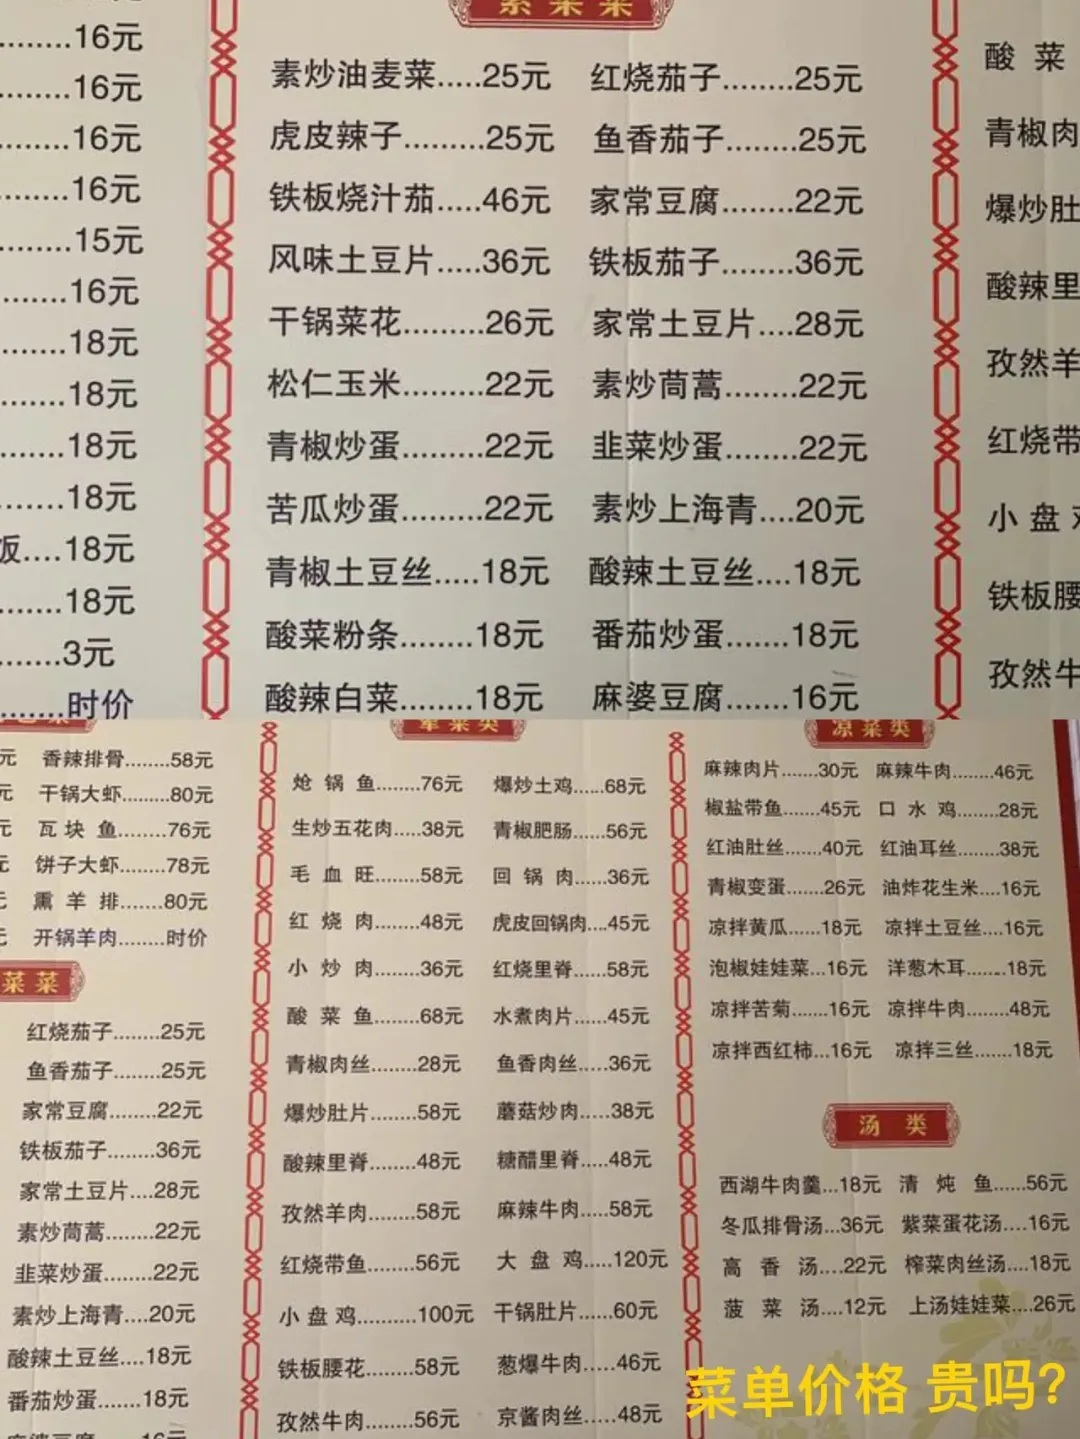 素菜菜
16元
素炒油麦菜.....25元 红烧茄子........25元
酸 菜
16元
虎皮辣子.........25元 鱼香茄子........25元
青椒肉
16元
铁板烧汁茄.....46元 家常豆腐........22元
爆炒肚
16元
风味土豆片.....36元 铁板茄子........36元
酸辣里
15元
干锅菜花.........26元 家常土豆片....28元
孜然羊
16元
松仁玉米.........22元 素炒茼蒿........22元
红烧带
18元
青椒炒蛋.........22元 韭菜炒蛋........22元
小 盘
18元
苦瓜炒蛋.........22元 素炒上海青....20元
铁板腰
18元
青椒土豆丝.....18元 酸辣土豆丝....18元
孜然牛
18元
酸菜粉条.........18元 番茄炒蛋.......18元
饭....18元
酸辣白菜.........18元 麻婆豆腐.......16元
18元
.......3元
.......时价
荤菜类
凉菜类
元 香辣排骨........58元
元 干锅大虾........80元
元 瓦 块 鱼........76元
元 饼子大虾........78元
熏 羊 排.......80元
元 开锅羊肉........时价
菜菜
红烧茄子........25元
鱼香茄子........25元
家常豆腐........22元
铁板茄子........36元
家常土豆片....28元
素炒茼蒿........22元
韭菜炒蛋........22元
素炒上海青....20元
酸辣土豆丝....18元
番茄炒蛋.......18元
麻婆豆腐.......16元
炝 锅 鱼........76元 爆炒土鸡......68元
生炒五花肉.....38元 青椒肥肠......56元
毛 血 旺........58元 回 锅 肉......36元
红 烧 肉........48元 虎皮回锅肉....45元
小 炒 肉........36元 红烧里脊......58元
酸 菜 鱼........68元 水煮肉片......45元
青椒肉丝........28元 鱼香肉丝.....36元
爆炒肚片........58元 蘑菇炒肉.....38元
酸辣里脊........48元 糖醋里脊.....48元
孜然羊肉........58元 麻辣牛肉.....58元
红烧带鱼........56元 大 盘 鸡.....120元
小 盘 鸡..........100元 干锅肚片.....60元
铁板腰花........58元 葱爆牛肉.....46元
孜然牛肉........56元 京酱肉丝.....48元
麻辣肉片.......30元 麻辣牛肉........46元
椒盐带鱼.......45元 口 水 鸡........28元
红油肚丝.......40元 红油耳丝........38元
青椒变蛋.......26元 油炸花生米....16元
凉拌黄瓜.......18元 凉拌土豆丝....16元
泡椒娃娃菜...16元 洋葱木耳........18元
凉拌苦菊.......16元 凉拌牛肉........48元
凉拌西红柿...16元 凉拌三丝.......18元
汤 类
西湖牛肉羹...18元 清 炖 鱼......56元
冬瓜排骨汤...36元 紫菜蛋花汤....16元
高 香 汤....22元 榨菜肉丝汤....18元
菠 菜 汤....12元 上汤娃娃菜....26元
菜单价格 贵吗?